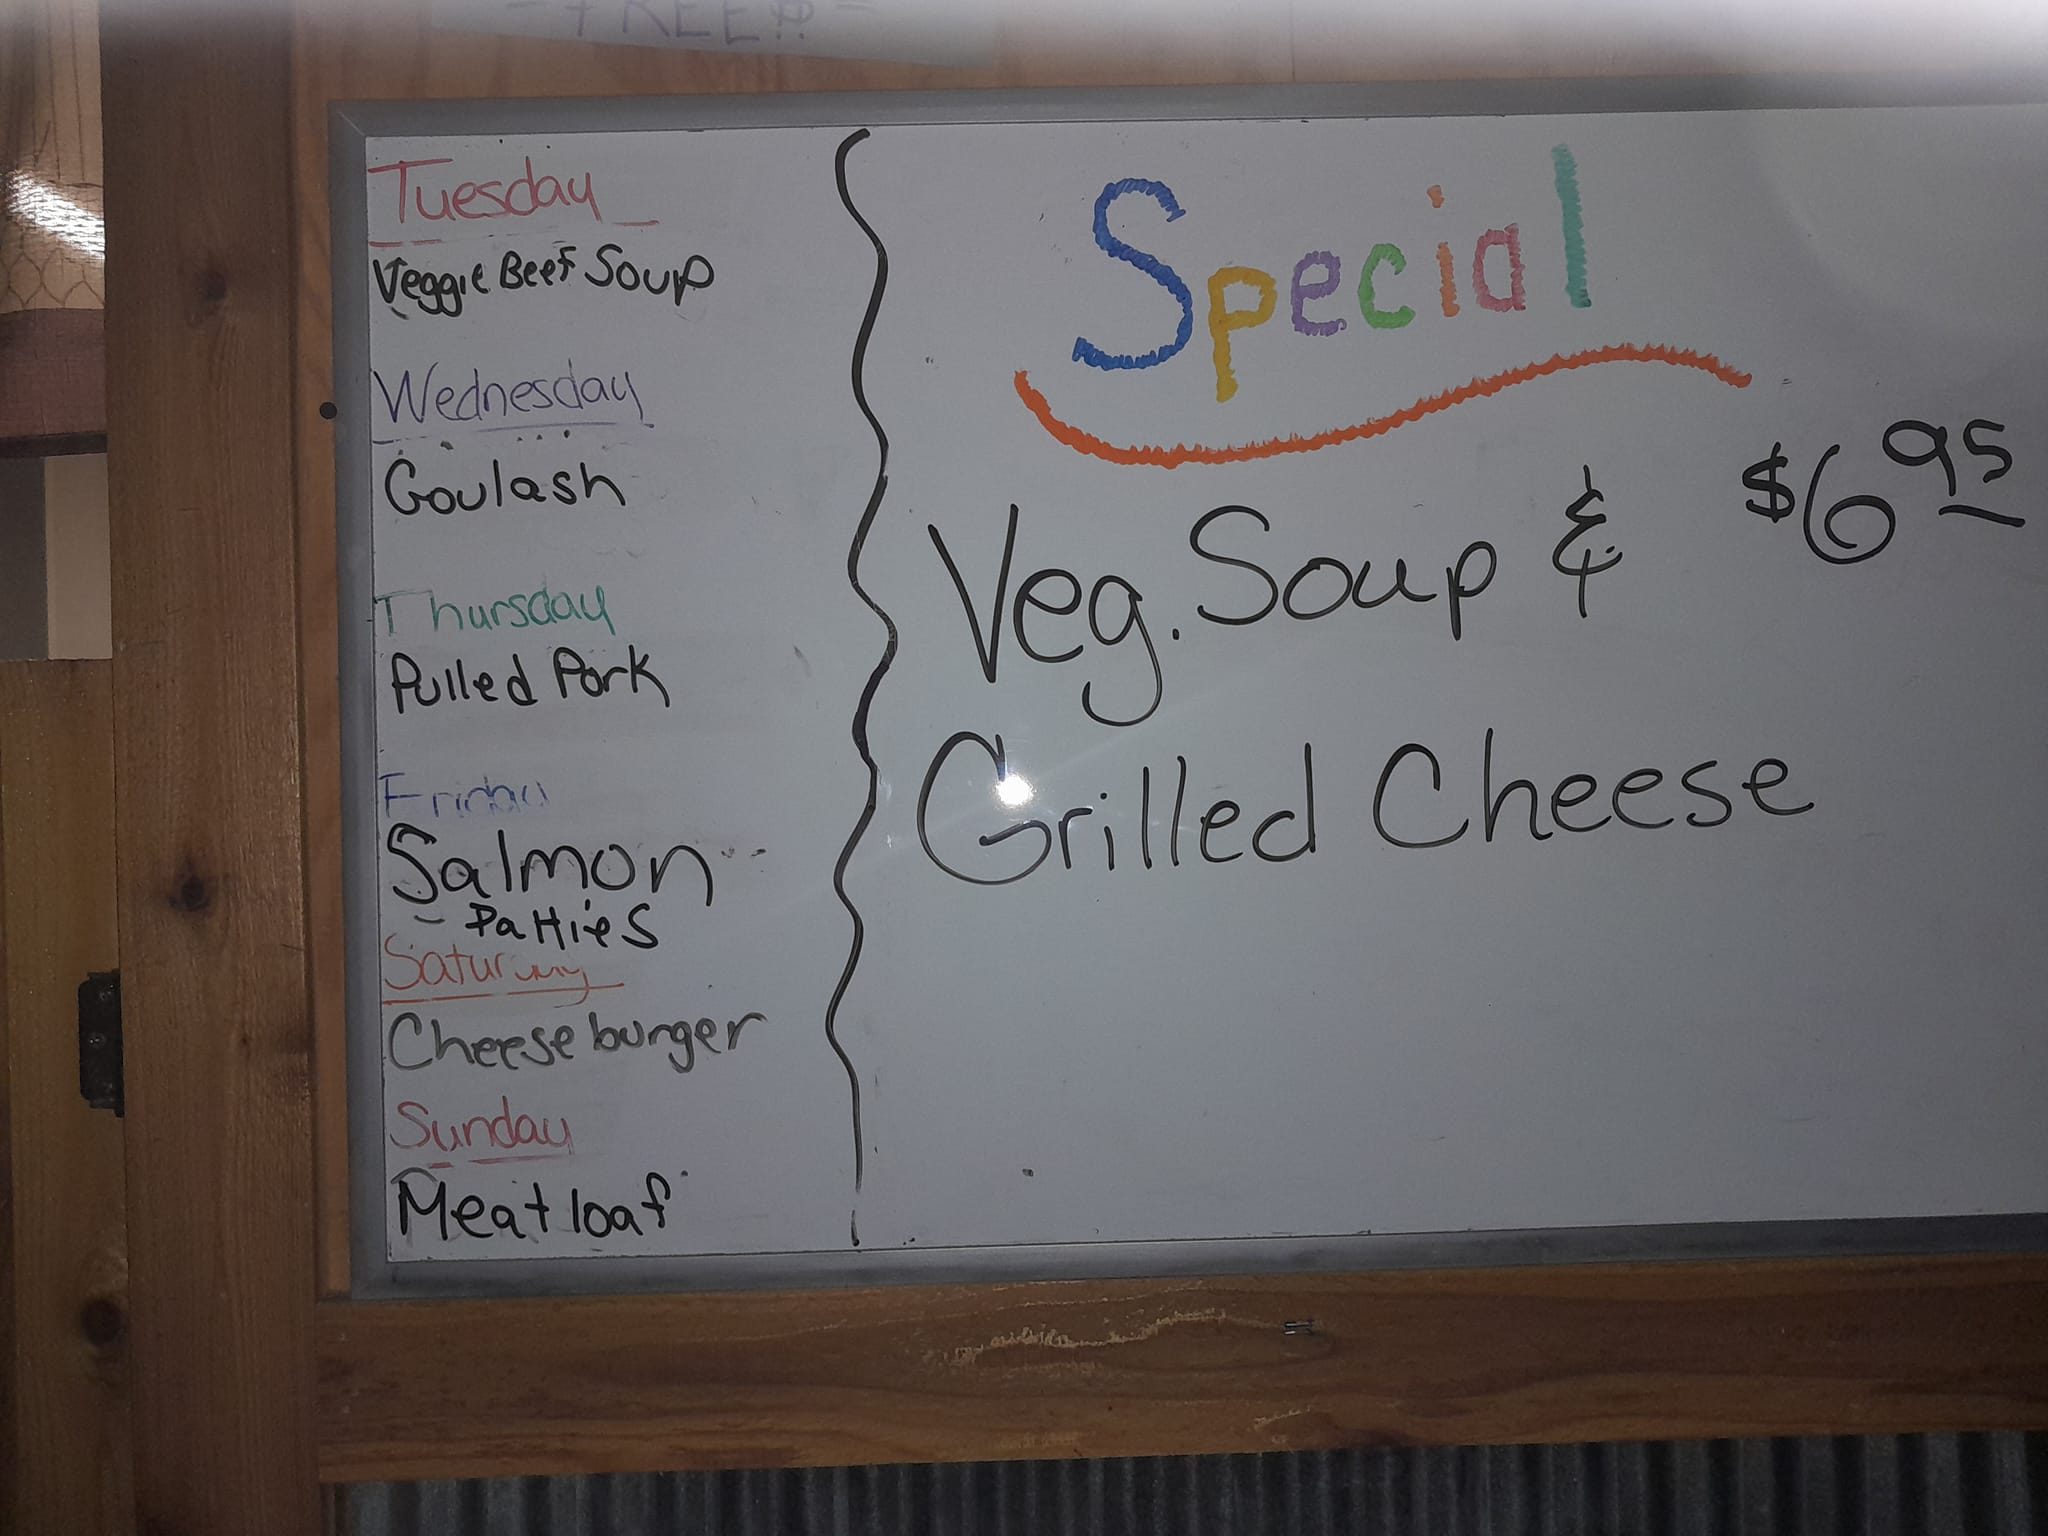 FREE!!
Tuesday
Veggie Beef Soup
Wednesday
Goulash
Thursday
Pulled Pork
Friday
Salmon
- Patties
Saturday
Cheeseburger
Sunday
Meatloaf
Special
$6 95
Veg. Soup &
Grilled Cheese